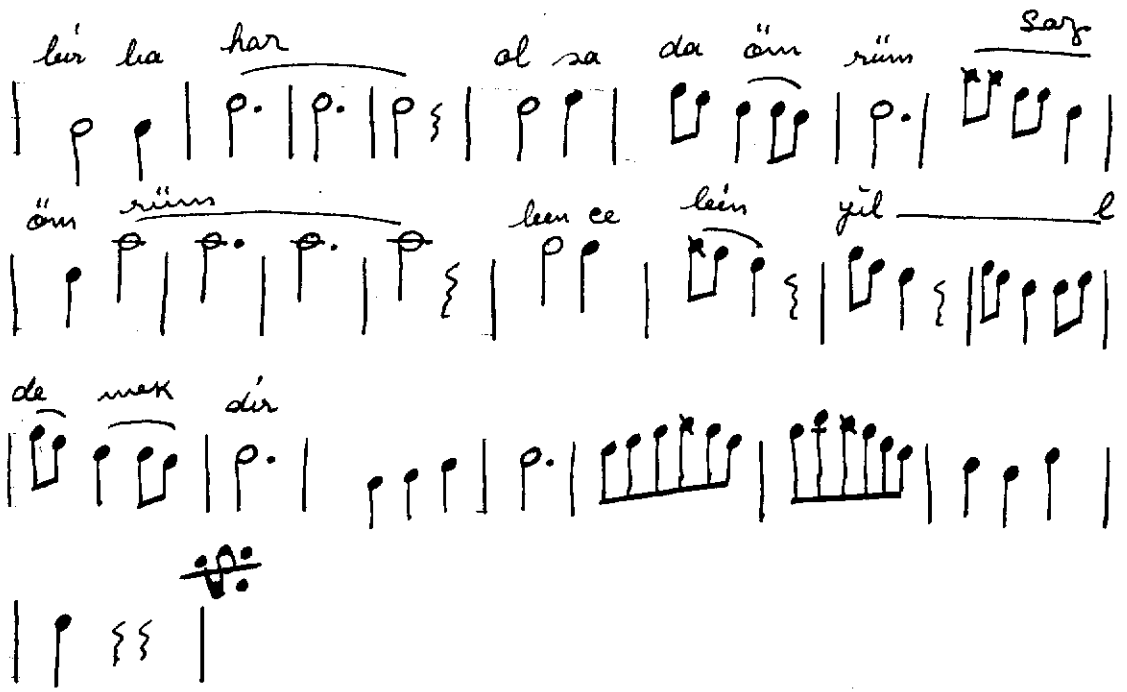 bir ba har ol sa da öm rüm Saz
öm rüm leen ce leén yıl l
de mek dir